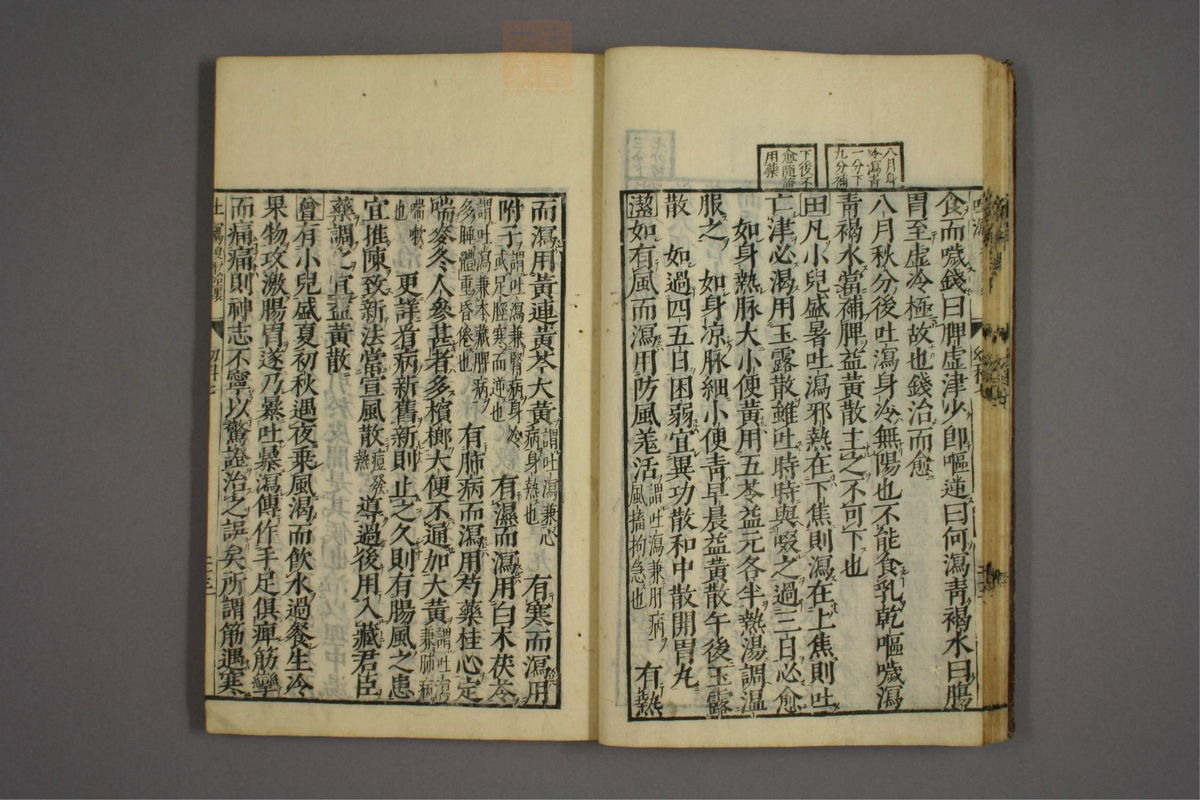 八月
冷瀉青
一分下
九分補
下後不
愈隨證
用藥
食而噦錢曰脾虛津少卽嘔逆曰何瀉靑褐水曰腸
胃至虛冷極故也錢治而愈
八月秋分後吐瀉身冷無陽也不能食乳乾嘔噦瀉
靑褐水當補脾益黃散主之不可下也
田凡小兒盛暑吐瀉邪熱在下焦則瀉在上焦則吐
亡津必渴用玉露散雖吐時時與啜之過三日必愈
如身熱脉大小便黃用五苓益元各半熱湯調溫
服之 如身凉脉細小便靑早晨益黃散午後玉露
散 如過四五日困弱宜異功散和中散開胃丸
潔如有風而瀉用防風羗活謂吐瀉兼肝病風搐拘急也 有熱
而瀉用黃連黃芩大黃謂吐瀉兼心病身熱也 有寒而瀉用
附子謂吐瀉兼腎病身冷或足脛寒而逆也 有濕而瀉用白木茯苓
謂吐瀉兼本藏脾病多睡體重昏倦也 有肺病而瀉用芍藥桂心定
喘麥冬人參甚者多檳榔大便不通加大黃謂吐瀉兼肺病
喘嗽也 更詳看病新舊新則止之久則有腸風之患
宜推陳致新法當宣風散痘發熱 導過後用入藏君臣
藥調之宜益黃散
曾有小兒盛夏初秋遇夜乘風渴而飲水過餐生冷
果物攻激腸胃遂乃暴吐暴瀉傳作手足俱痺筋攣
而痛痛則神志不寧以驚證治之誤矣所謂筋遇寒